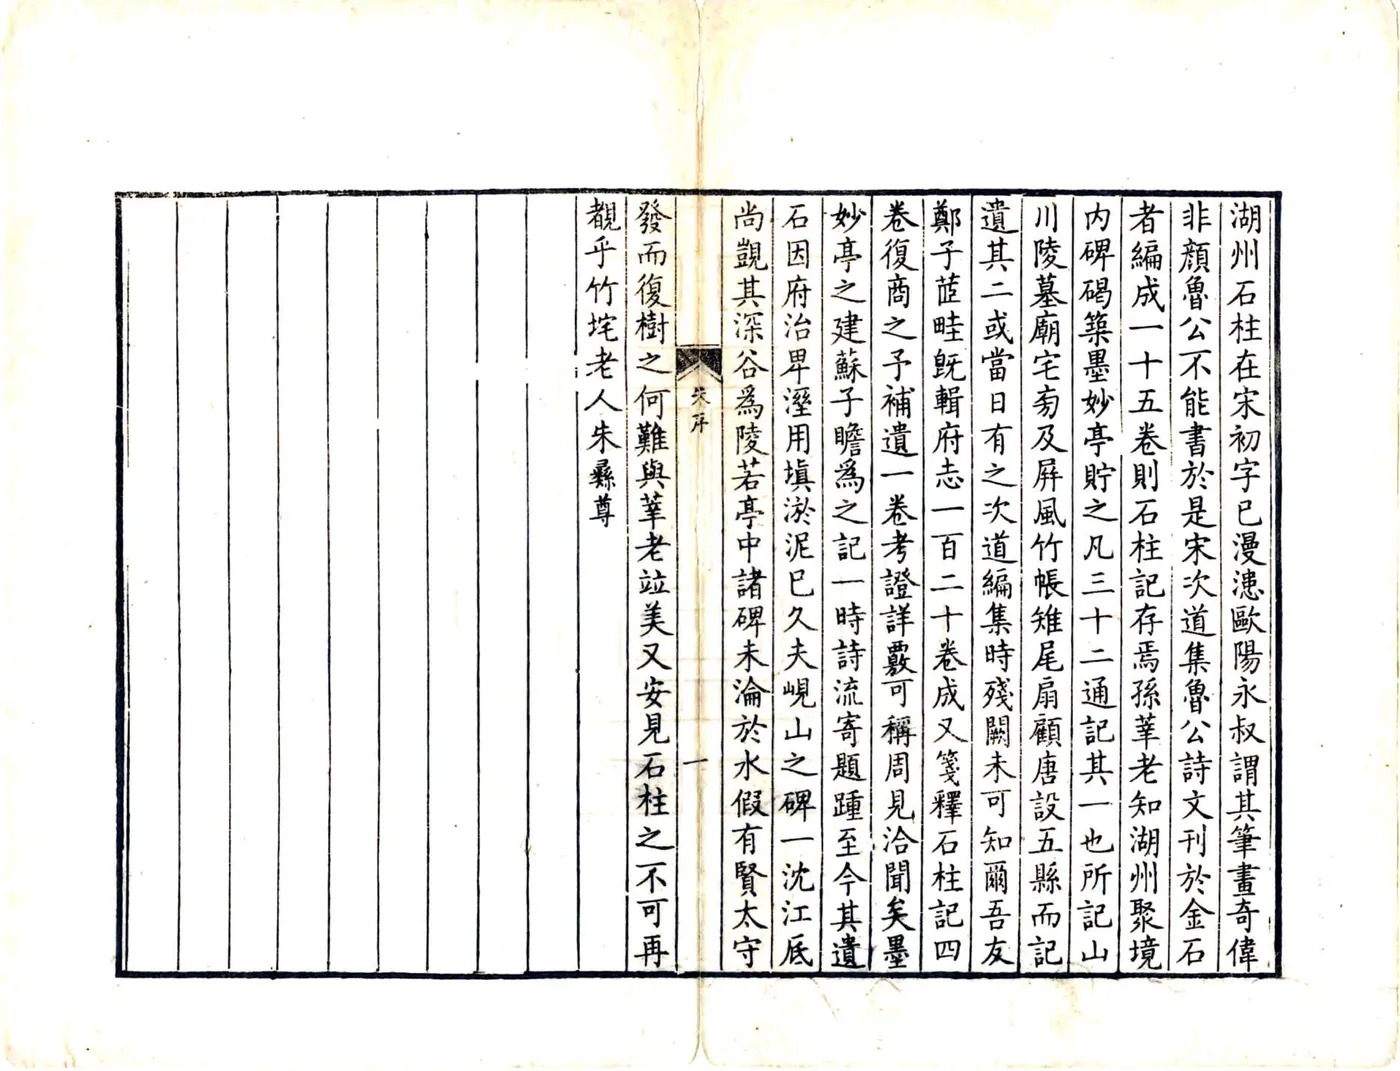 湖州石柱在宋初字已漫漶歐陽永叔謂其筆畫奇偉
非顏魯公不能書於是宋次道集魯公詩文刊於金石
者編成一十五卷則石柱記存焉孫莘老知湖州聚境
内碑碣築墨妙亭貯之凡三十二通記其一也所記山
川陵墓廟宅旁及屏風竹帳雉尾扇顧唐設五縣而記
遺其二或當日有之次道編集時殘闕未可知爾吾友
鄭子芷畦旣輯府志一百二十卷成又箋釋石柱記四
卷復商之予補遺一卷考證詳覈可稱周見洽聞矣墨
妙亭之建蘇子瞻爲之記一時詩流寄題踵至今其遺
石因府治卑溼用塡淤泥已久夫峴山之碑一沈江底
尚覬其深谷爲陵若亭中諸碑未淪於水假有賢太守
朱序
一
發而復樹之何難與莘老竝美又安見石柱之不可再
覩乎竹垞老人朱彝尊